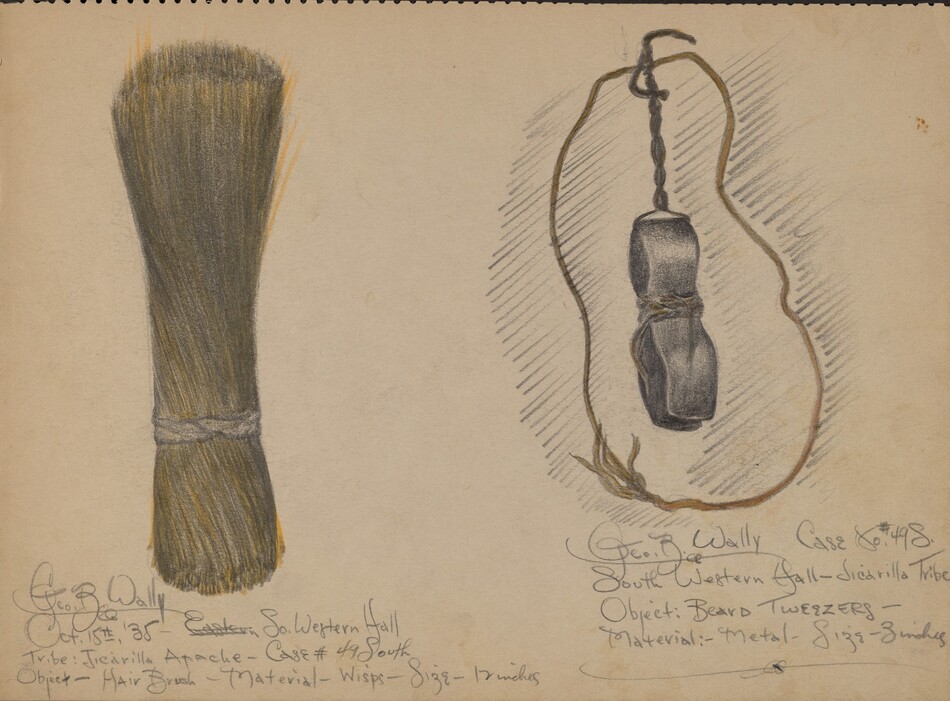 Geo. B. Wally
Oct. 15th, '35 - Eastern So. Western Hall
Tribe: Jicarilla Apache - Case # 49 South
Object - Hair Brush - Material - Wisps - Size - 12 inches
Geo. B. Wally Case No. #49 S.
South Western Hall - Jicarilla Tribe
Object: Beard Tweezers -
Material:- Metal - Size - 3 inches